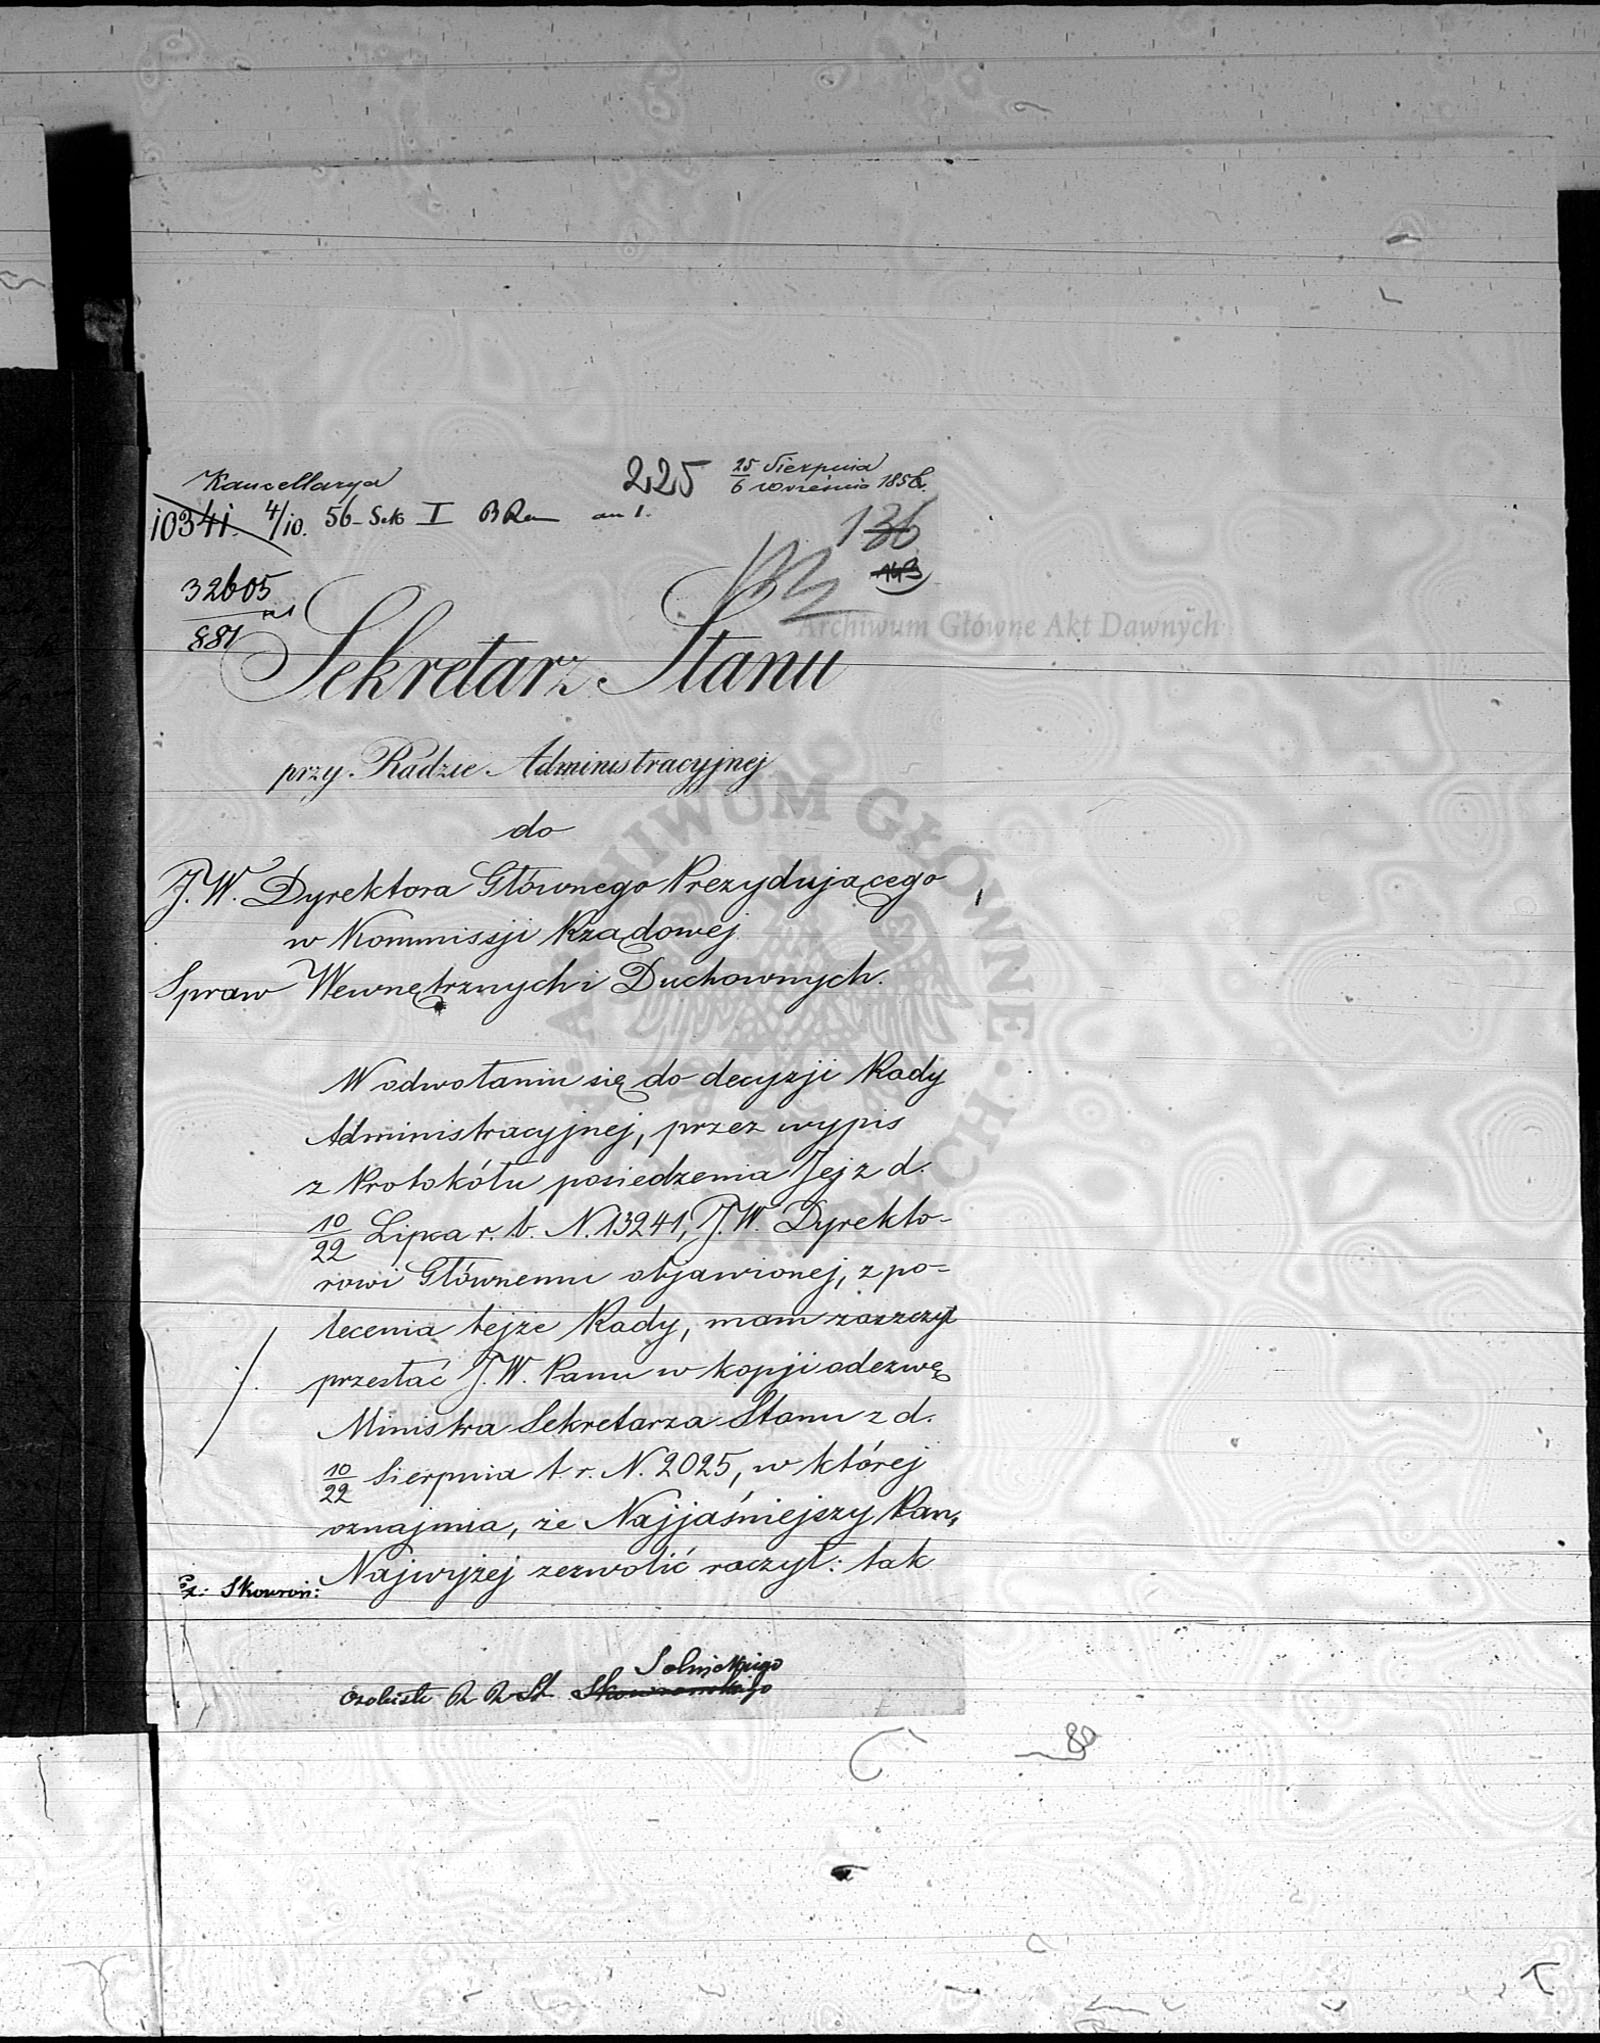 Kancellarya
225
25 Sierpnia
6 Września 1856.
10341. 4/10. 56 - Sek I an 1.
136
143
32605
881
Sekretarz Stanu
Archiwum Główne Akt Dawnych
przy Radzie Administracyjnej
do
J.W. Dyrektora Głównego Prezydującego
w Kommissji Rządowej
Spraw Wewnętrznych i Duchownych.
W odwołaniu się do decyzji Rady
Administracyjnej, przez wypis
z Protokółu posiedzenia Jej z d.
10/22 Lipca r. b. N. 13241, J.W. Dyrekto-
rowi Głównemu objawionej, z po-
lecenia tejże Rady, mam zaszczyt
przesłać J.W. Panu w kopji odezwę
Ministra Sekretarza Stanu z d.
10/22 Sierpnia t. r. N. 2025, w której
oznajmia, że Najjaśniejszy Pan,
Najwyżej zezwolić raczył: tak
Skowroń:
Solnickiego
Osobiste R R St Skowrońskiego
80